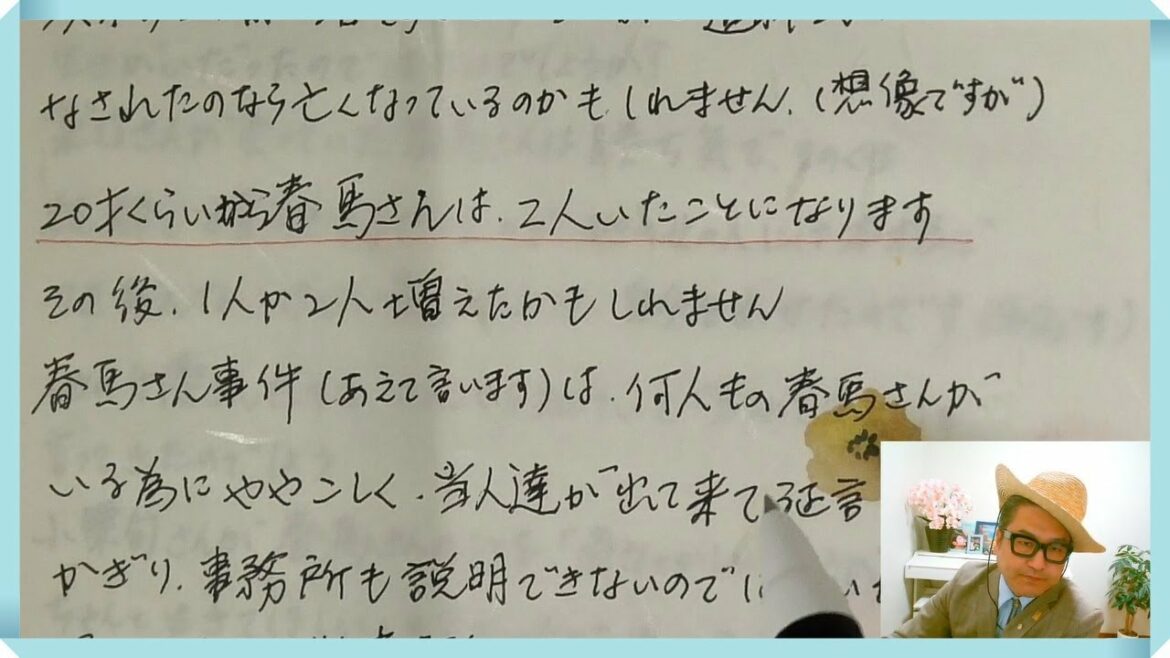 なされたのなら亡くなっているのかもしれません.(想像ですが)
20才くらいから春馬さんは、2人いたことになります
その後、1人か2人増えたかもしれません
春馬さん事件(あえて言います)は、何人もの春馬さんが
いる為にややこしく、当人達が出て来て証言
かぎり、事務所も説明できないので